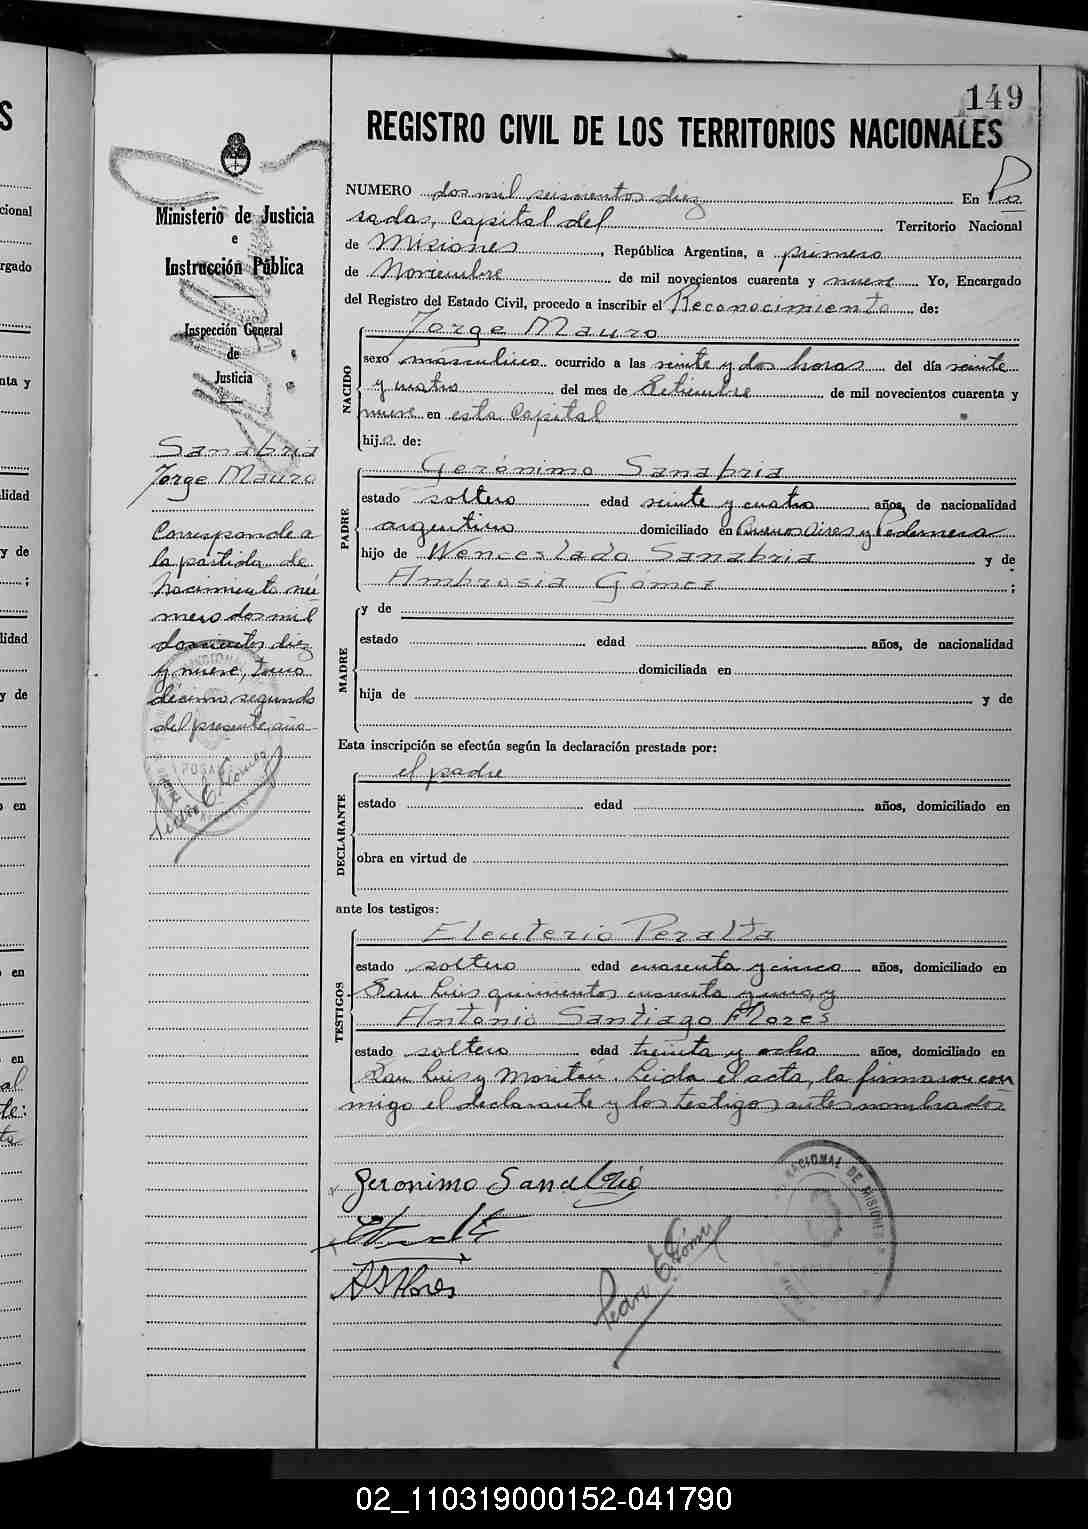 149
REGISTRO CIVIL DE LOS TERRITORIOS NACIONALES
Ministerio de Justicia
e
Instrucción Pública
Inspección General
de
Justicia
Sanabria
Jorge Mauro
Corresponde a
la partida de
Nacimiento nú
mero dos mil
doscientos diez
y nueve, tomo
décimo segundo
del presente año
Pedro E. Gómez
NUMERO dos mil seiscientos diez En Po
sadas, capital del Territorio Nacional
de Misiones, República Argentina, a primero
de Noviembre de mil novecientos cuarenta y nueve Yo, Encargado
del Registro del Estado Civil, procedo a inscribir el Reconocimiento de:
Jorge Mauro
NACIDO
sexo masculino ocurrido a las veinte y dos horas del día veinte
y cuatro del mes de Setiembre de mil novecientos cuarenta y
nueve en esta Capital
hijo de:
Gerónimo Sanabria
PADRE
estado soltero edad veinte y cuatro años, de nacionalidad
argentino domiciliado en Buenos Aires y Pedernera
hijo de Wenceslado Sanabria y de
Ambrosia Gómez ;
y de
MADRE
estado edad años, de nacionalidad
domiciliada en
hija de y de
Esta inscripción se efectúa según la declaración prestada por:
el padre
DECLARANTE
estado edad años, domiciliado en
obra en virtud de
ante los testigos:
Eleuterio Peralta
TESTIGOS
estado soltero edad cuarenta y cinco años, domiciliado en
San Luis quinientos cuarenta y uno, y
Antonio Santiago Flores
estado soltero edad treinta y ocho años, domiciliado en
San Luis y Moritán. Leida el acta, la firmaron con
migo el declarante y los testigos antes nombrados
Geronimo Sanabria
A S Flores
Pedro E. Gómez
NACIONAL DE MISIONES
02_110319000152-041790